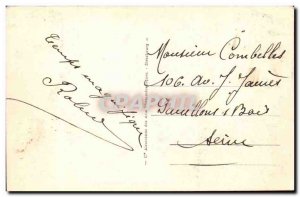 Temps magnifique
Roland
Monsieur Combelles
106. Av. J. Jaurès
Pavillons s Bois
Seine